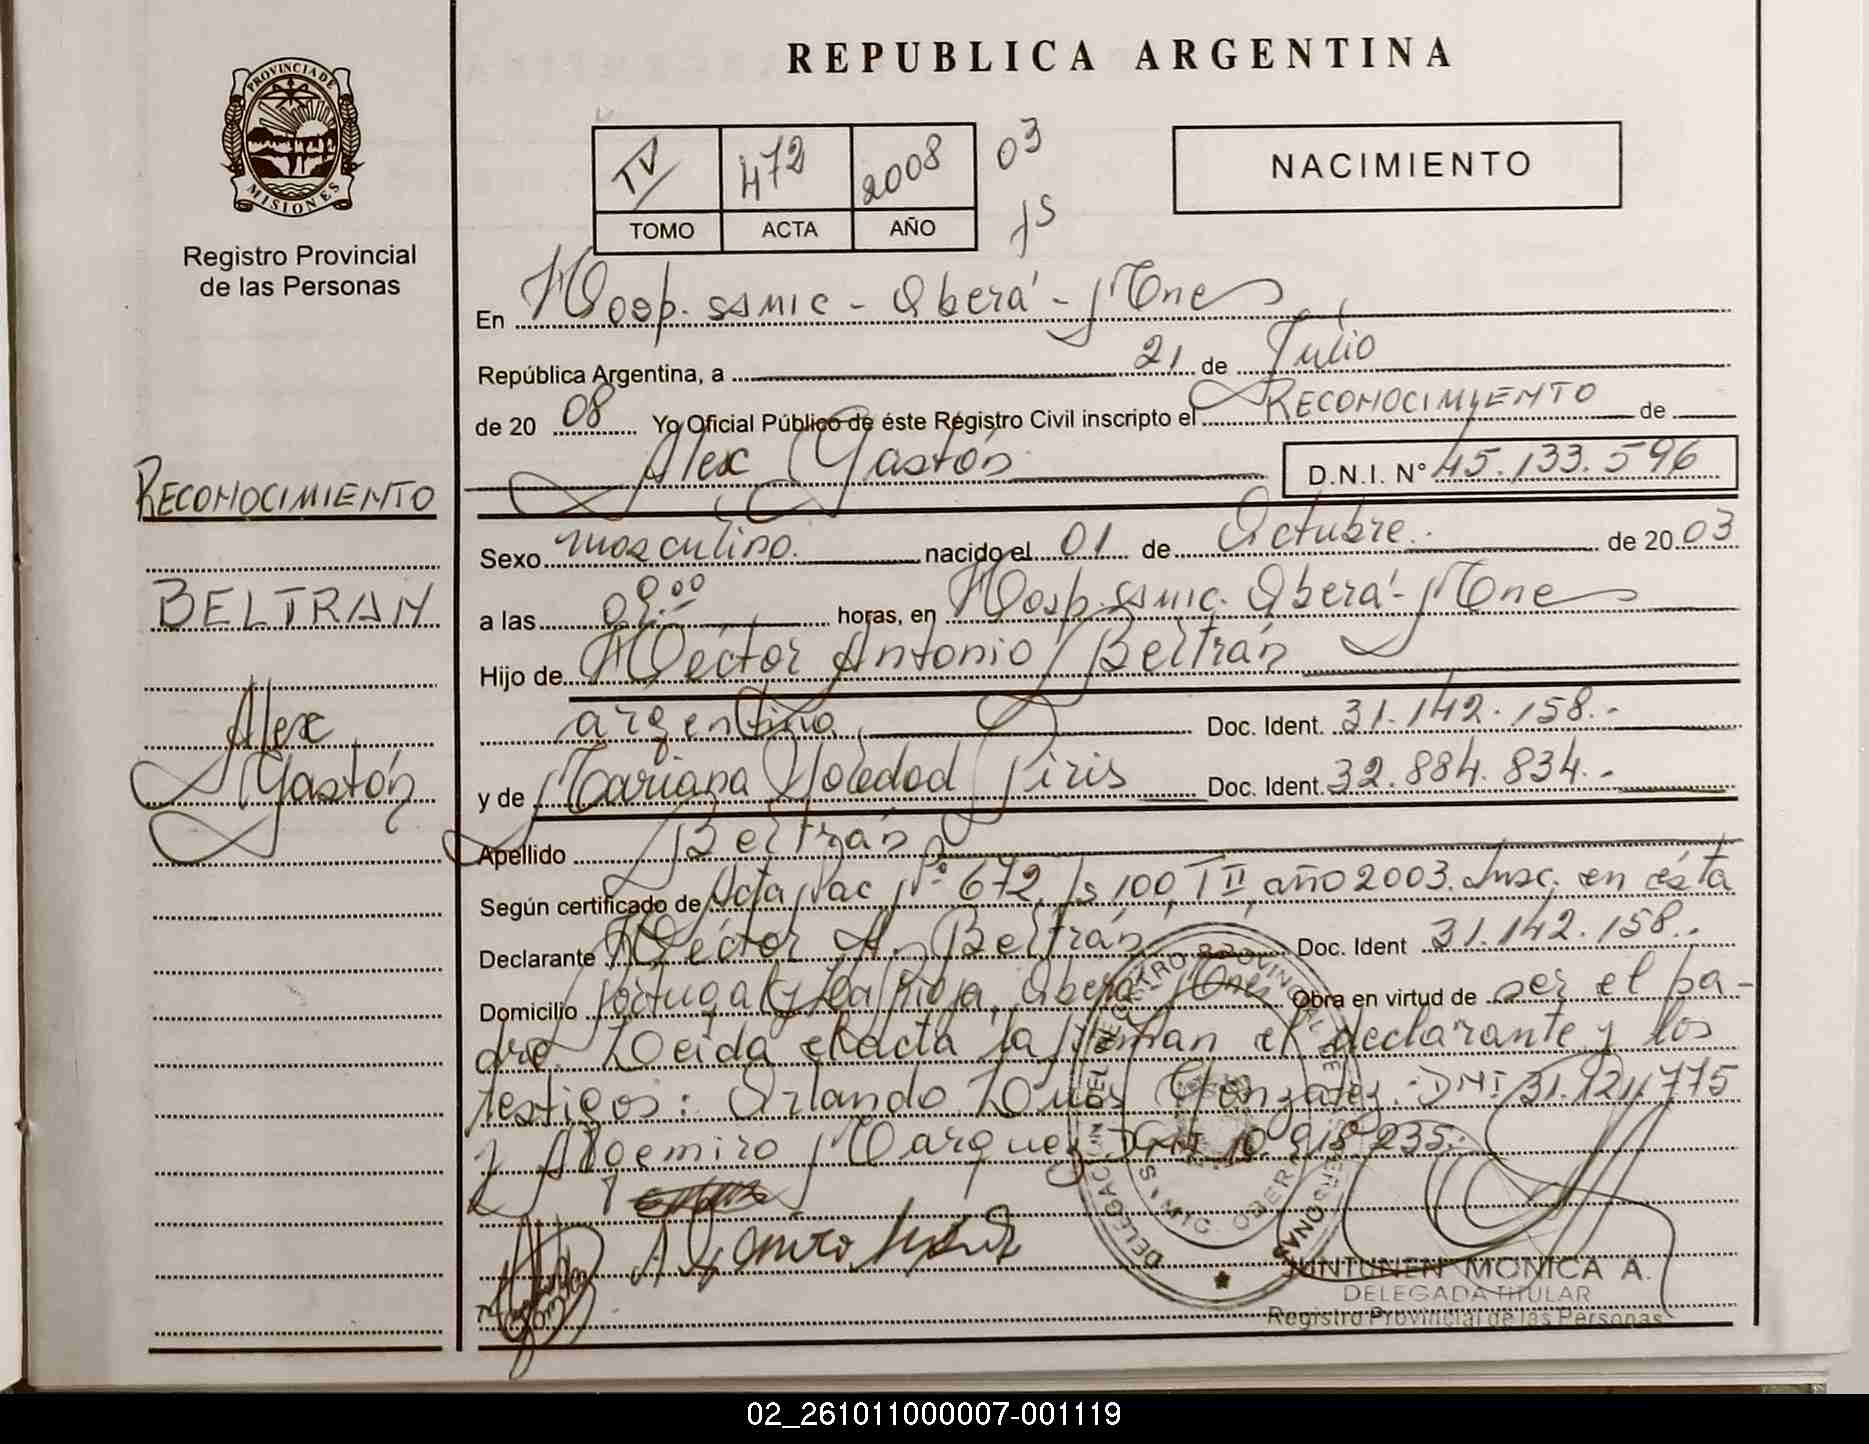 REPUBLICA ARGENTINA
PROVINCIA DE
MISIONES
Registro Provincial
de las Personas
TV 472 2008 03
TOMO ACTA AÑO
NACIMIENTO
En Hosp. SAMIC - Oberá - Mnes
República Argentina, a 21 de Julio
de 20 08 Yo Oficial Público de éste Registro Civil inscripto el RECONOCIMIENTO de
Alex Gastón D.N.I. Nº 45.133.596
Sexo masculino. nacido el 01 de Octubre de 20 03
a las 09.00 horas, en Hosp. SAMIC. Oberá - Mnes
Hijo de Héctor Antonio Beltrán
argentino Doc. Ident. 31.142.158.-
y de Mariana Soledad Piris Doc. Ident. 32.884.834.-
Apellido Beltrán
Según certificado de Acta Nac Nº 672, Fs 100, T II, año 2003. Insc. en ésta
Declarante Héctor A. Beltrán Doc. Ident 31.142.158.-
Domicilio Portugal y La Rioja, Oberá Mnes Obra en virtud de ser el pa-
dre. Leída el acta la firman el declarante y los
testigos: Orlando Luis Gonzalez. DNI 31.121.775
y Algemiro Marques DNI 10.918.235.
RECONOCIMIENTO
BELTRAN
Alex
Gastón
DELEGACION DEL REGISTRO PROVINCIAL DE LAS PERSONAS
OBERA
JUNTUNEN MONICA A.
DELEGADA TITULAR
Registro Provincial de las Personas
02_261011000007-001119